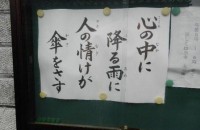 心の中に
降る雨に
人の情けが
傘をさす